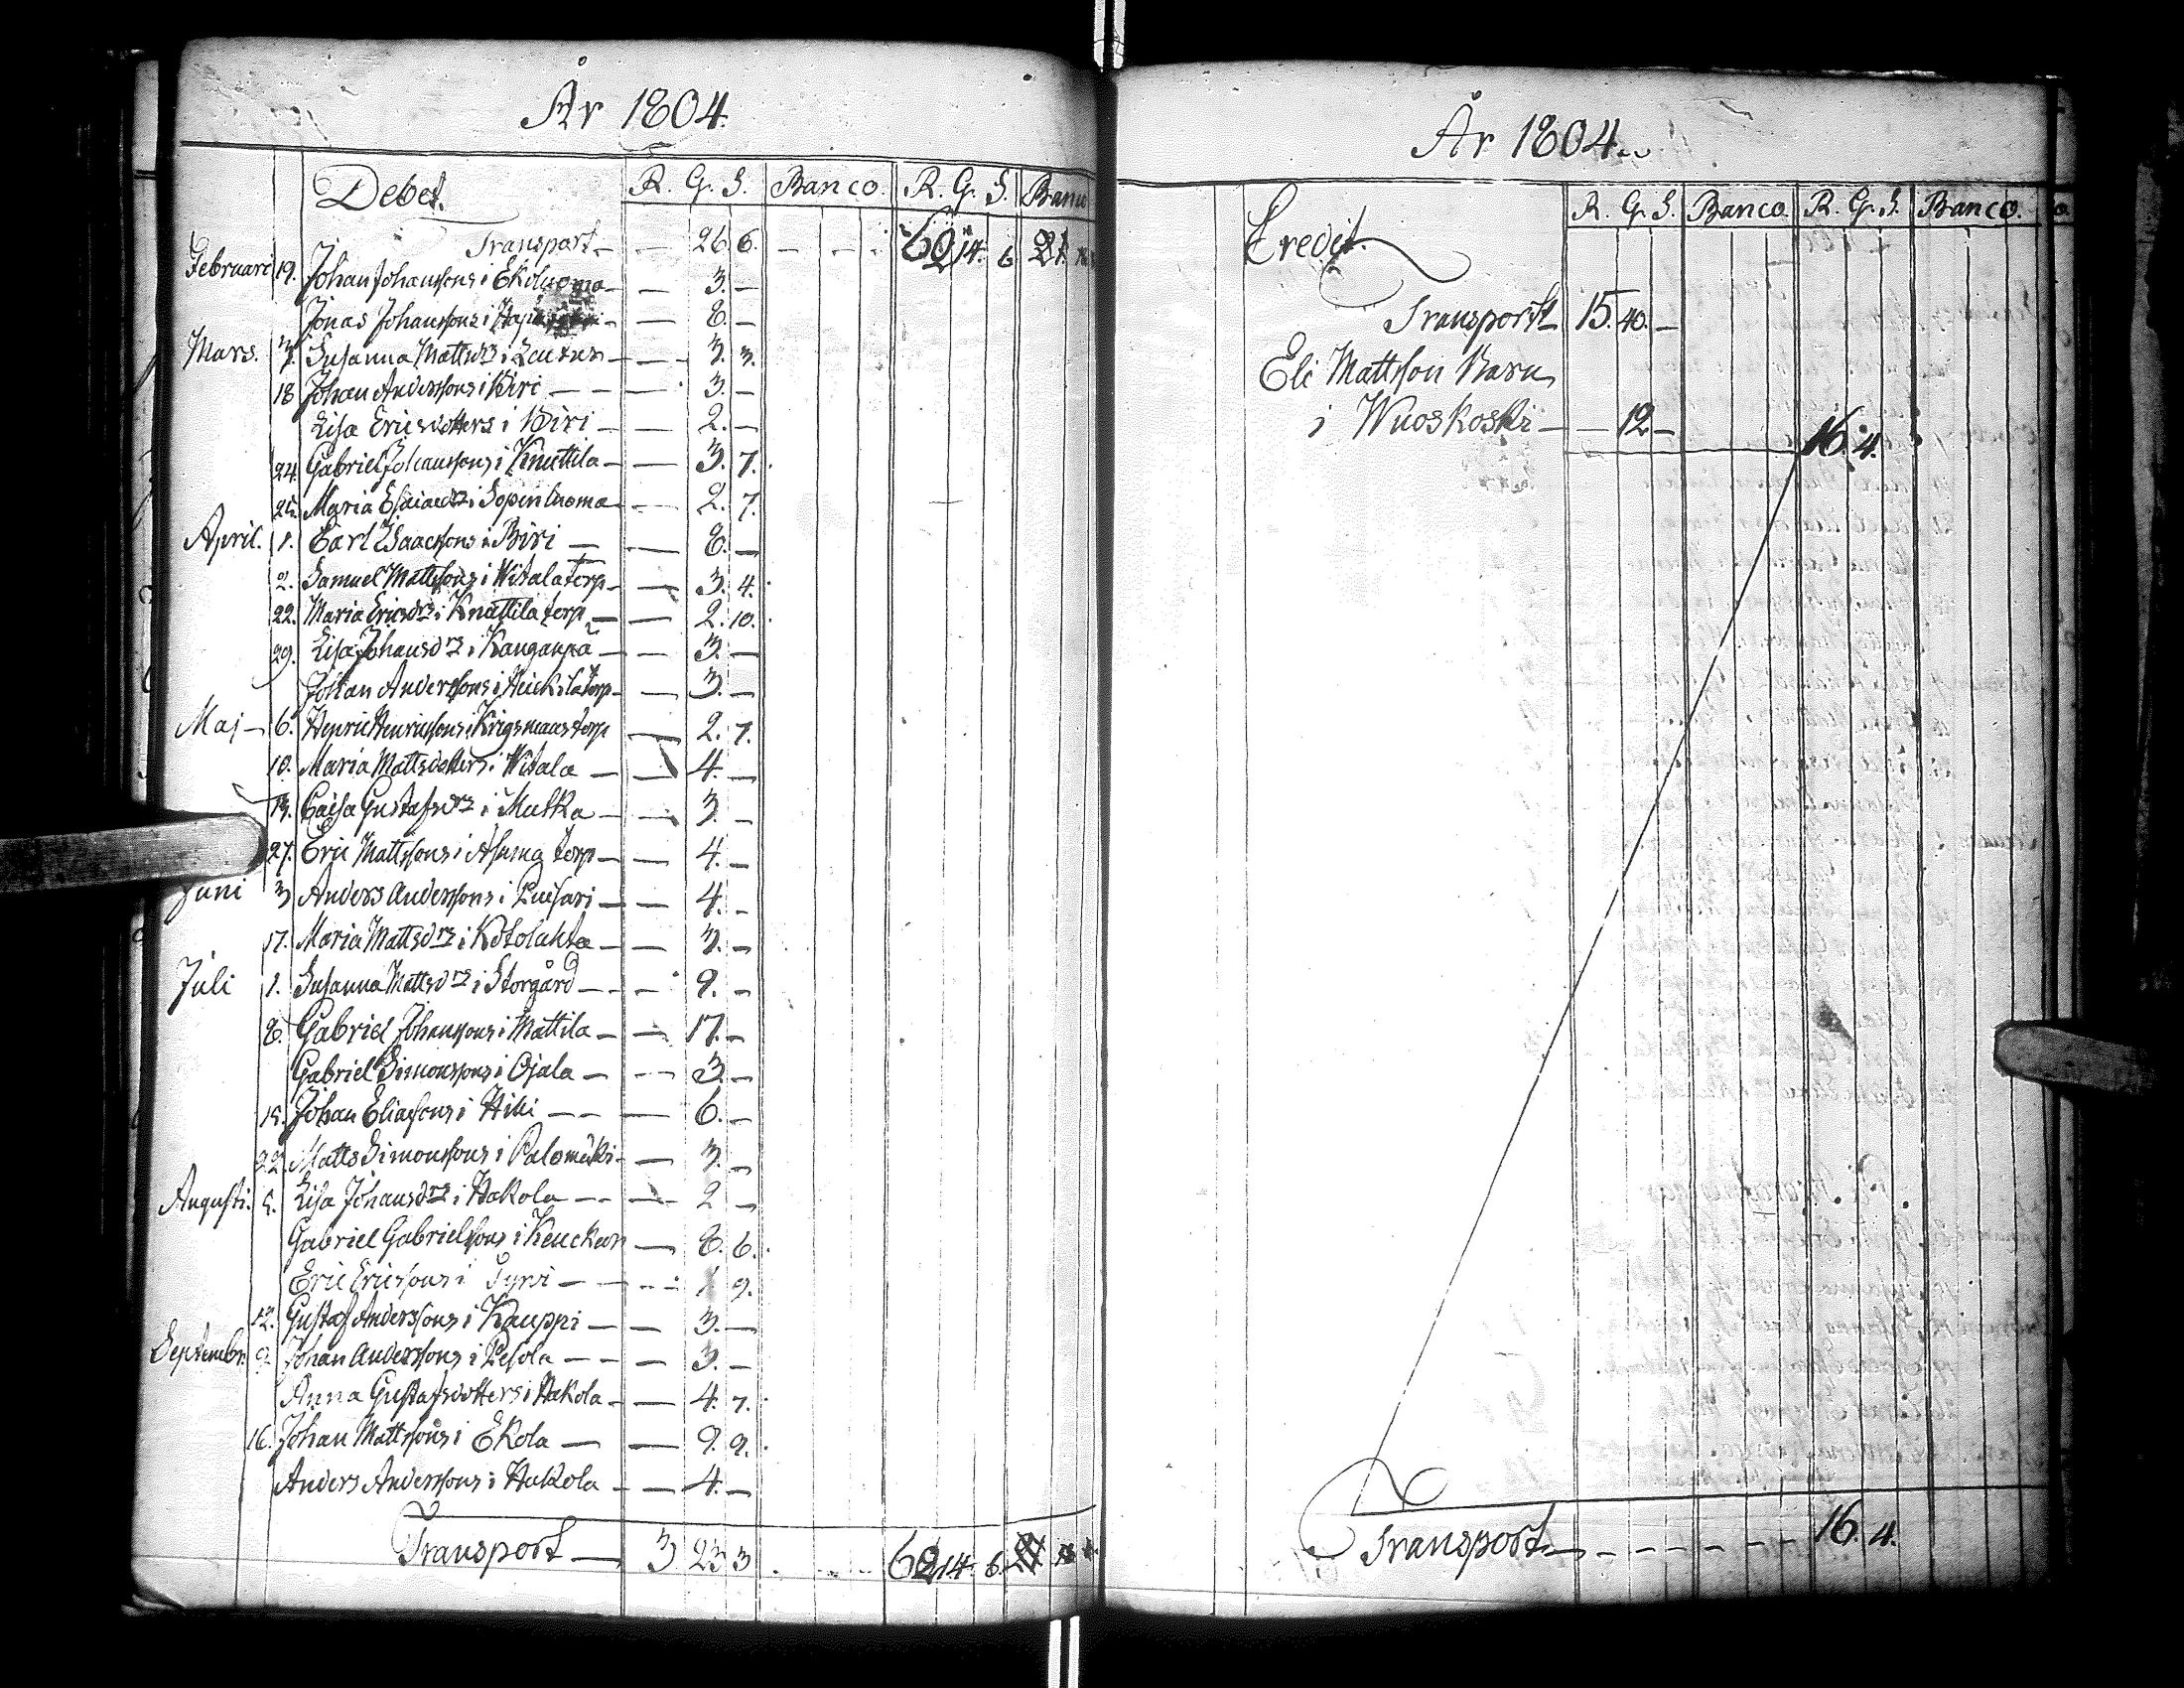 År 1804.
Debet. R. G. S. Banco. R. G. S. Banco
Transport — — 26 6. — — 62 14. 6 21.
Februari 19. Johan Johanssons i Ekoluoma — — 3. —
Jonas Johanssons i — — 8. —
Mars. 4. Susanna Mattsdrs i — — 3. 3.
18 Johan Anderssons i Biri — — 3. —
Lisa Ericsdotters i Biri — — 2. —
24. Gabriel Johanssons i Knuttila — — 3. 7.
25. Maria i Sopenluoma — — 2. 7.
April. 1. Carl Isaacssons i Biri — — 8. —
2. Samuel Mattssons i Witala torp — — 3. 4.
22. Maria Ericsdrs i Knuttila torp — — 2. 10.
29. Lisa Johansdrs i Kanganpä — — 3. —
Johan Anderssons i Heickila torp — — 3. —
Maj — 6. Henric Henricssons i Krigsmans torp — 2. 7.
10. Maria Mattsdotters i Witala — — 4. —
13. Caisa Gustafsdrs i Mutka — — 3. —
27. Eric Mattssons i Asuma torp — — 4. —
Juni 3 Anders Anderssons i Luesari — — 4. —
17. Maria Mattsdrs i Kotolahta — — 3. —
Juli 1. Susanna Mattsdrs i Storgård — — 9. —
8. Gabriel Johanssons i Mattila — — 17. —
Gabriel Simonssons i Ojala — — 3. —
15. Johan Eliassons i — — 6. —
22. Matts Simonssons i Palomäki — — 3. —
Augusti. 5. Lisa Johansdrs i Hakola — — 2 —
Gabriel Gabrielssons i — 8. 6.
Eric Ericssons i — — 1 9.
12. Gustaf Anderssons i Kauppi — — 3. —
Septembr. 9. Johan Anderssons i Pesola — — 3. —
Anna Gustafsdotters i Hakola — — 4. 7.
16. Johan Mattssons i Ekola — — 9. 9.
Anders Anderssons i Hakola — — 4. —
Transport — 3 23 3 . — 62 14. 6.
År 1804.
Credit. R. G. S. Banco. R. G. S. Banco.
Transport 15. 40. —
Eli Mattsson Barn
i Wuoskoski — — 12 — 16. 4.
Transport — — — — — — 16. 4.